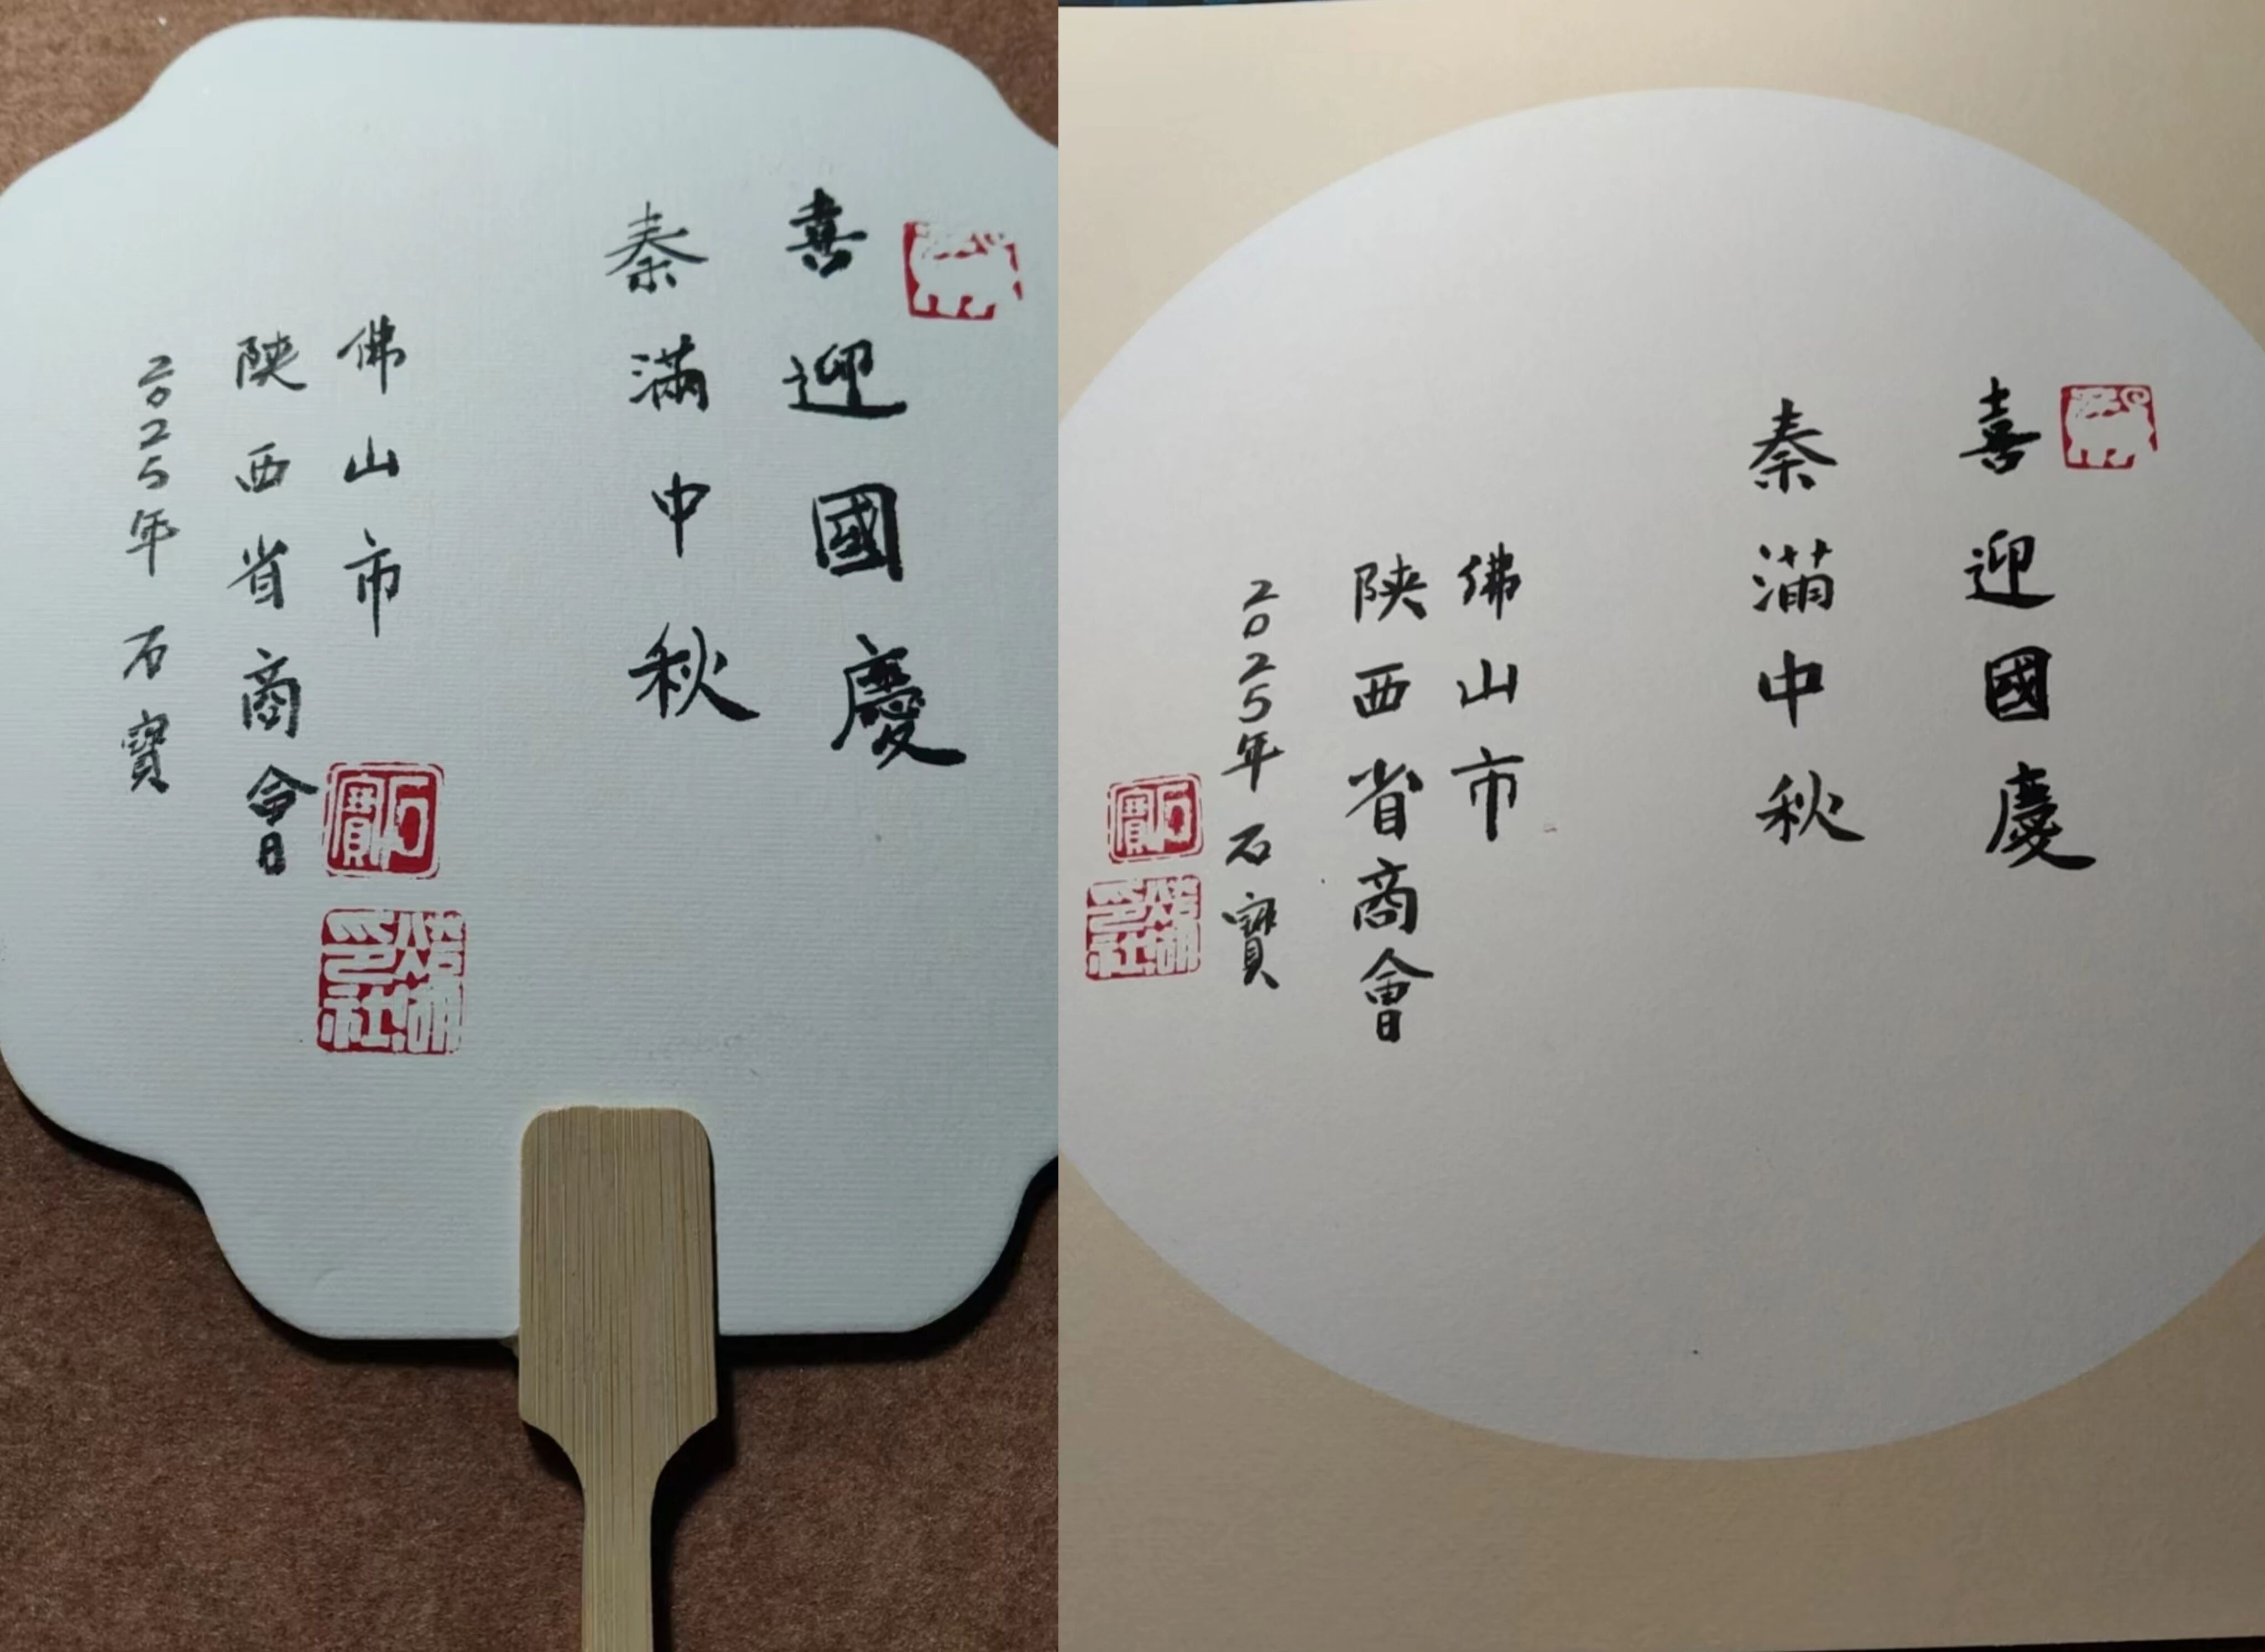 喜迎國慶
秦滿中秋
佛山市
陝西省商會
2025年 石寶
石寶
喜迎國慶
秦滿中秋
佛山市
陝西省商會
2025年 石寶
石寶